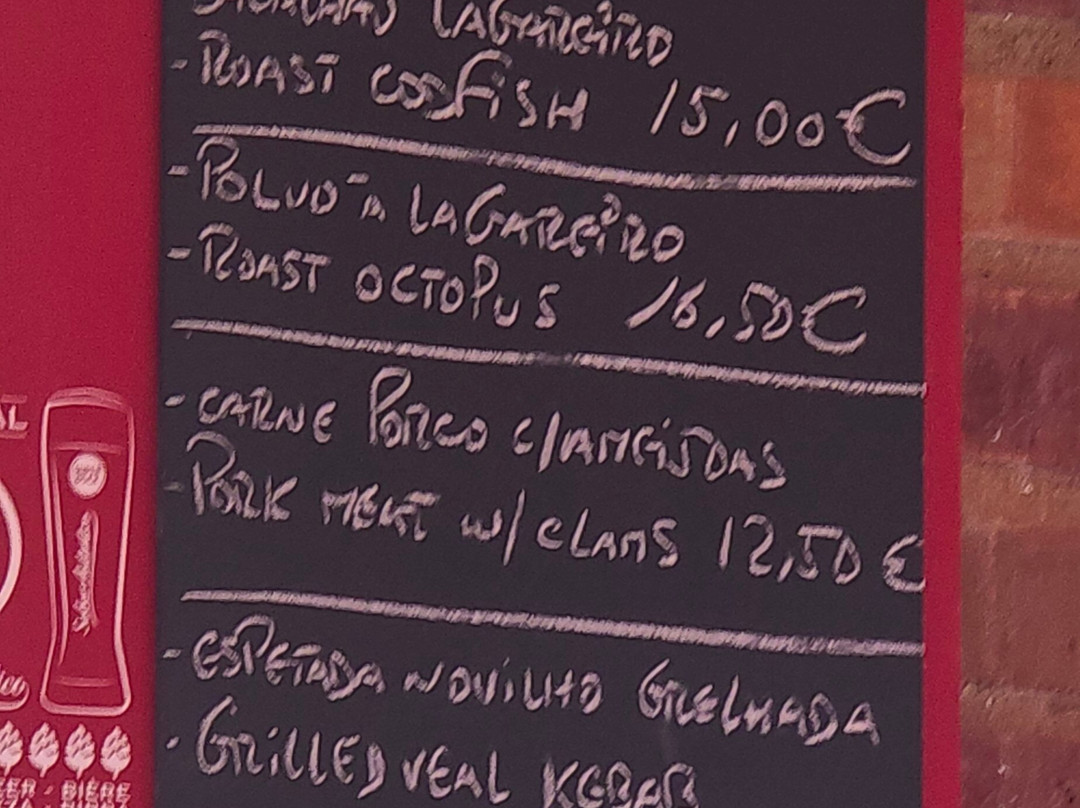 LAGAREIRO
-ROAST CODFISH 15,00€
-POLVO À LAGAREIRO
-ROAST OCTOPUS 16,50€
-CARNE PORCO C/AMEIJOAS
-PORK MEAT W/CLAMS 12,50€
-ESPETADA NOVILHO GRELHADA
-GRILLED VEAL KEBAB